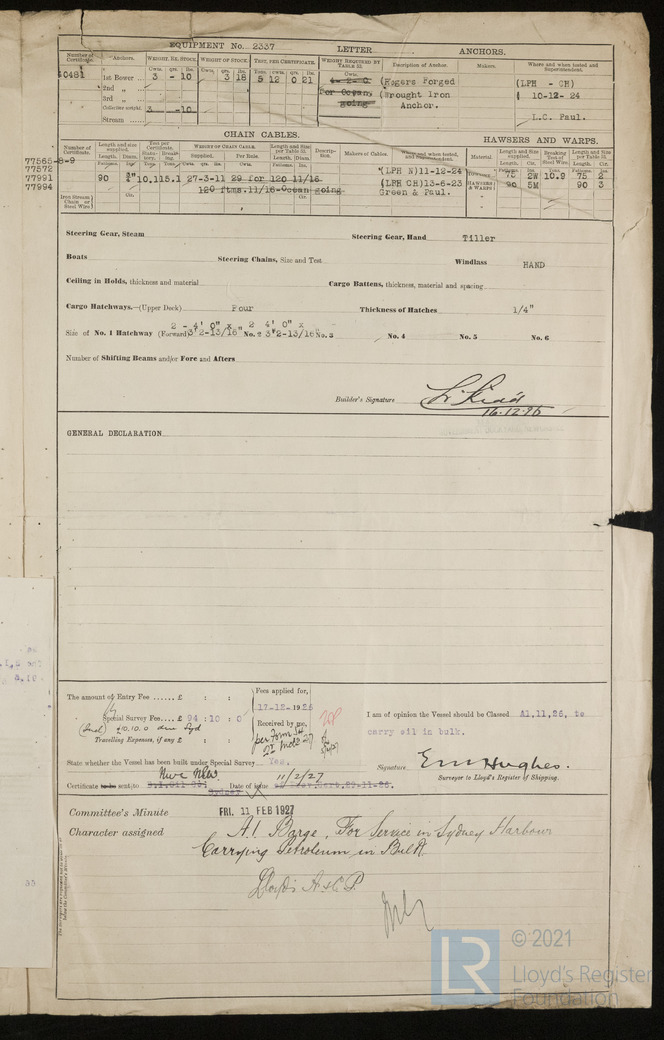 EQUIPMENT No. 2337 LETTER ANCHORS.
Number of Certificate. Anchors. WEIGHT, EX. STOCK. WEIGHT OF STOCK. TEST, PER CERTIFICATE. WEIGHT REQUIRED BY TABLE 31. Description of Anchor. Makers. Where and when tested and Superintendent.
Cwts. qrs. lbs. Cwts. qrs. lbs. Tons. cwts. qrs. lbs. Cwts.
40481 1st Bower 3 - 10 3 18 5 12 0 21 4-2-0. (Rogers Forged (LPH - CH)
2nd " For Ocean, (Wrought Iron ( 10-12-24
3rd " going Anchor.
Collective weight. 3 -10 L.C. Paul.
Stream
CHAIN CABLES. HAWSERS AND WARPS.
Number of Certificate. Length and size supplied. Test per Certificate. WEIGHT OF CHAIN CABLE. Length and Size per Table 31. Description. Makers of Cables. Material. Length and Size supplied. Breaking Test of Steel Wire. Length and Size per Table 31.
Length. Diam. Supplied. Per Rule. Length. Diam. Length. Cir. Length. Cir.
77565-8-9
77572
77991
77994
90 ¾" 10.1 15.1 27-3-11 29 for 120 11/16 (LPH N)11-12-24 75 2W 10.9 75 2
120 ftms.11/16-Ocean going (LPH CH)13-6-23 HAWSERS & WARPS 90 5M 90 3
Green & Paul.
Iron Stream Chain or Steel Wire
Steering Gear, Steam Steering Gear, Hand Tiller
Boats Steering Chains, Size and Test Windlass HAND
Ceiling in Holds, thickness and material Cargo Battens, thickness, material and spacing
Cargo Hatchways.—(Upper Deck) Four Thickness of Hatches 1/4"
2 - 4' 0" x 2 4' 0" x
Size of No. 1 Hatchway (Forward) 3'2-13/16" No. 2 3'2-13/16" No. 3 No. 4 No. 5 No. 6
Number of Shifting Beams and/or Fore and Afters
Builder's Signature
16.12.26
GENERAL DECLARATION
The amount of Entry Fee ...... £ : : Fees applied for,
17-12-1926
Special Survey Fee.... £ 94 : 10 : 0 Received by me,
I am of opinion the Vessel should be Classed A1,11,26, to
carry oil in bulk.
Travelling Expenses, if any £ : :
State whether the Vessel has been built under Special Survey Yes.
Signature E M Hughes.
Surveyor to Lloyd's Register of Shipping.
11/2/27
Certificate to be sent to Sydney Date of issue
Committee's Minute FRI. 11 FEB 1927
Character assigned A.1. Barge, For Service in Sydney Harbour
Carrying Petroleum in Bulk.
Lloyd's A & C.P.
35
LR
© 2021
Lloyd's Register
Foundation